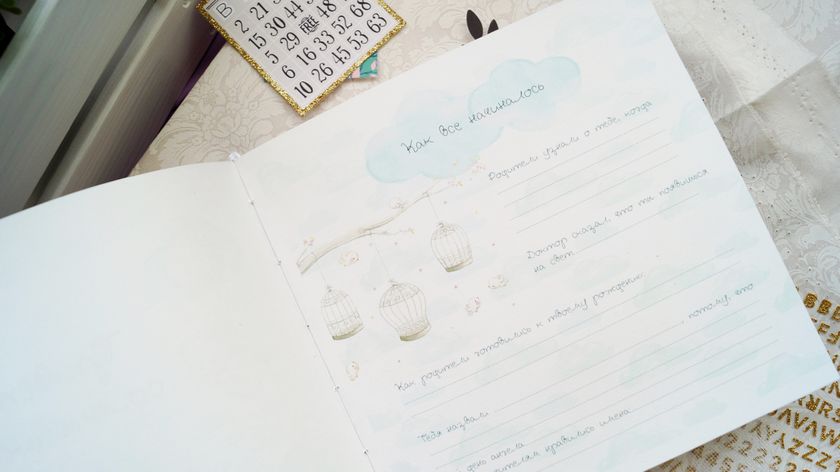 B
2 21
15 30 44
5 29 48
6 16 33 52 68
10 26 45 53 63
Как все начиналось
Родители узнали о тебе, когда
Доктор сказал, что ты появишься
на свет
Как родители готовились к твоему рождению:
Тебя назвали , потому, что
день ангела
нравились имена